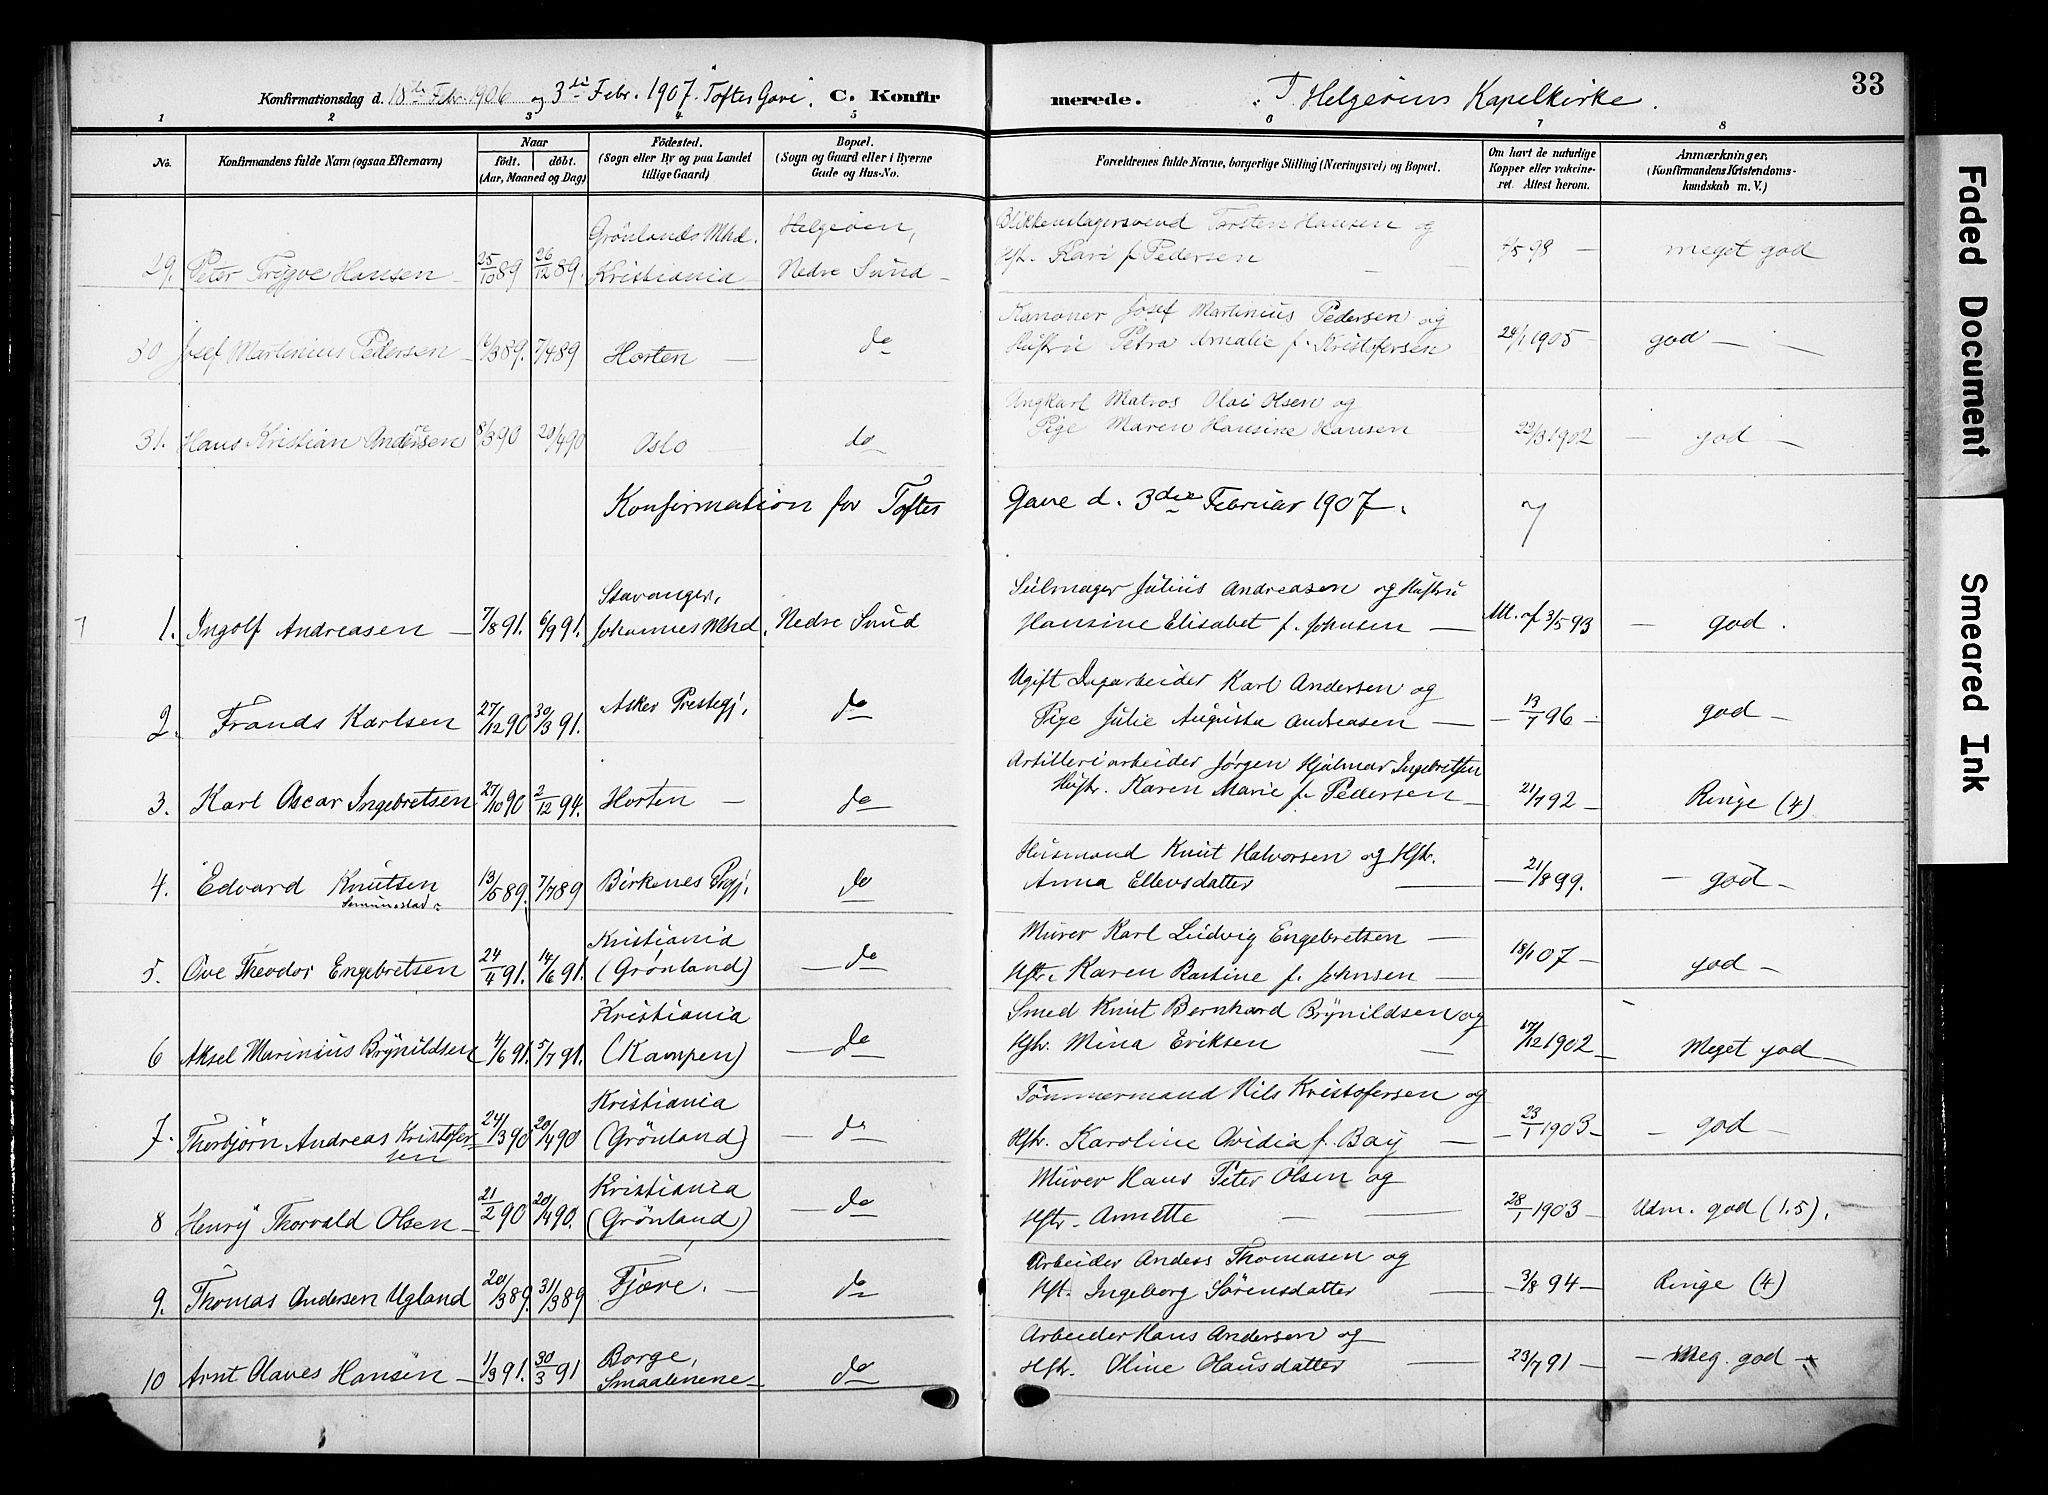 Konfirmationsdag d. 18de Febr. 1906 og 3die Febr. 1907. Toftes Gave. C. Konfir merede. I Helgøens Kapelkirke. 33
1 2 3 4 5 6 7 8
No. Konfirmandens fulde Navn (ogsaa Efternavn) Naar født. døbt. (Aar, Maaned og Dag) Fødested. (Sogn eller By og paa Landet tillige Gaard) Bopæl. (Sogn og Gaard eller i Byerne Gade og Hus-No. Forældrenes fulde Navne, borgerlige Stilling (Næringsvei) og Bopæl. Om havt de naturlige Kopper eller vakcineret. Attest herom. Anmærkninger, (Konfirmandens Kristendomskundskab m. V.)
Grönlands Mhd. Helgeöen, Blikkenslagersvend Torsten Hansen og
29. Peter Trygve Hansen 25/10 89 26/12 89. Kristiania Nedre Sund Hst. Kari f. Pedersen 4/5 98 meget god
Kanoner Josef Martinius Pedersen og
30 Josef Martinius Pedersen 16/3 89. 7/4 89 Horten do Hustru Petra Amalie f. Kristofersen 24/1 1905 god
Ungkarl Matros Olai Olsen og
31. Hans Kristian Andersen 8/3 90 20/4 90 Oslo do Pige Maren Hansine Hansen 22/3 1902 god
Konfirmation for Toftes Gave d. 3die Februar 1907.
Stavanger, Sulmager Julius Andreasen og Hustru
1. Ingolf Andreasen 7/8 91. 6/9 91. Johannes Mhd. Nedre Sund Hansine Elisabet f. Johnsen Att. af 3/5 93 god.
Ugift Dagarbeider Karl Andersen og
2. Frands Karlsen 27/12 90 30/3 91. Asker Prestegj. do Pige Julie Augusta Andreasen 13/7 96 god
Artilleriarbeider Jörgen Hjalmar Ingebretsen
3. Karl Oscar Ingebretsen 27/10 90 2/12 94. Horten do Hustr. Karen Marie f. Pedersen 21/7 92 Ringe (4)
Husmand Knut Halvorsen og Hstr.
4. Edvard Knutsen 13/5 89. 7/7 89 Birkenes Prgj. do Anna Ellevsdatter 21/8 99. god
Kristiania Murer Karl Ludvig Engebretsen
5. Ove Theodor Engebretsen 24/4 91. 14/6 91. (Grønland) do Hstr. Karen Bastine f. Johnsen 18/1 07 god
Kristiania Smed Knut Bernhard Brynildsen og
6 Aksel Marinius Brynildsen 4/6 91. 5/7 91. (Kampen) do Hstr. Mina Eriksen 17/12 1902 Meget god
Kristiania Tömmermand Nils Kristofersen og
7. Thorbjörn Andreas Kristofersen 24/3 90 20/4 90 (Grönland) do Hstr. Karoline Ovidia f. Bay 23/1 1903 god
Kristiania Murer Hans Peter Olsen og
8 Henry Thorvald Olsen 21/2 90 20/4 90. (Grönland) do Hstr. Annette 28/1 1903 Udm. god (1.5).
Arbeider Anders Thomasen og
9. Thomas Andersen Ugland 20/3 89. 31/3 89 Fjære. do Hst. Ingeborg Sörensdatter 3/8 94 Ringe (4)
Borge, Arbeider Hans Andersen og
10 Arnt Olaves Hansen 1/3 91. 30/3 91 Smaalenene do Hstr. Oline Olausdatter 23/7 91 Meg. god
Faded Document
Smeared Ink